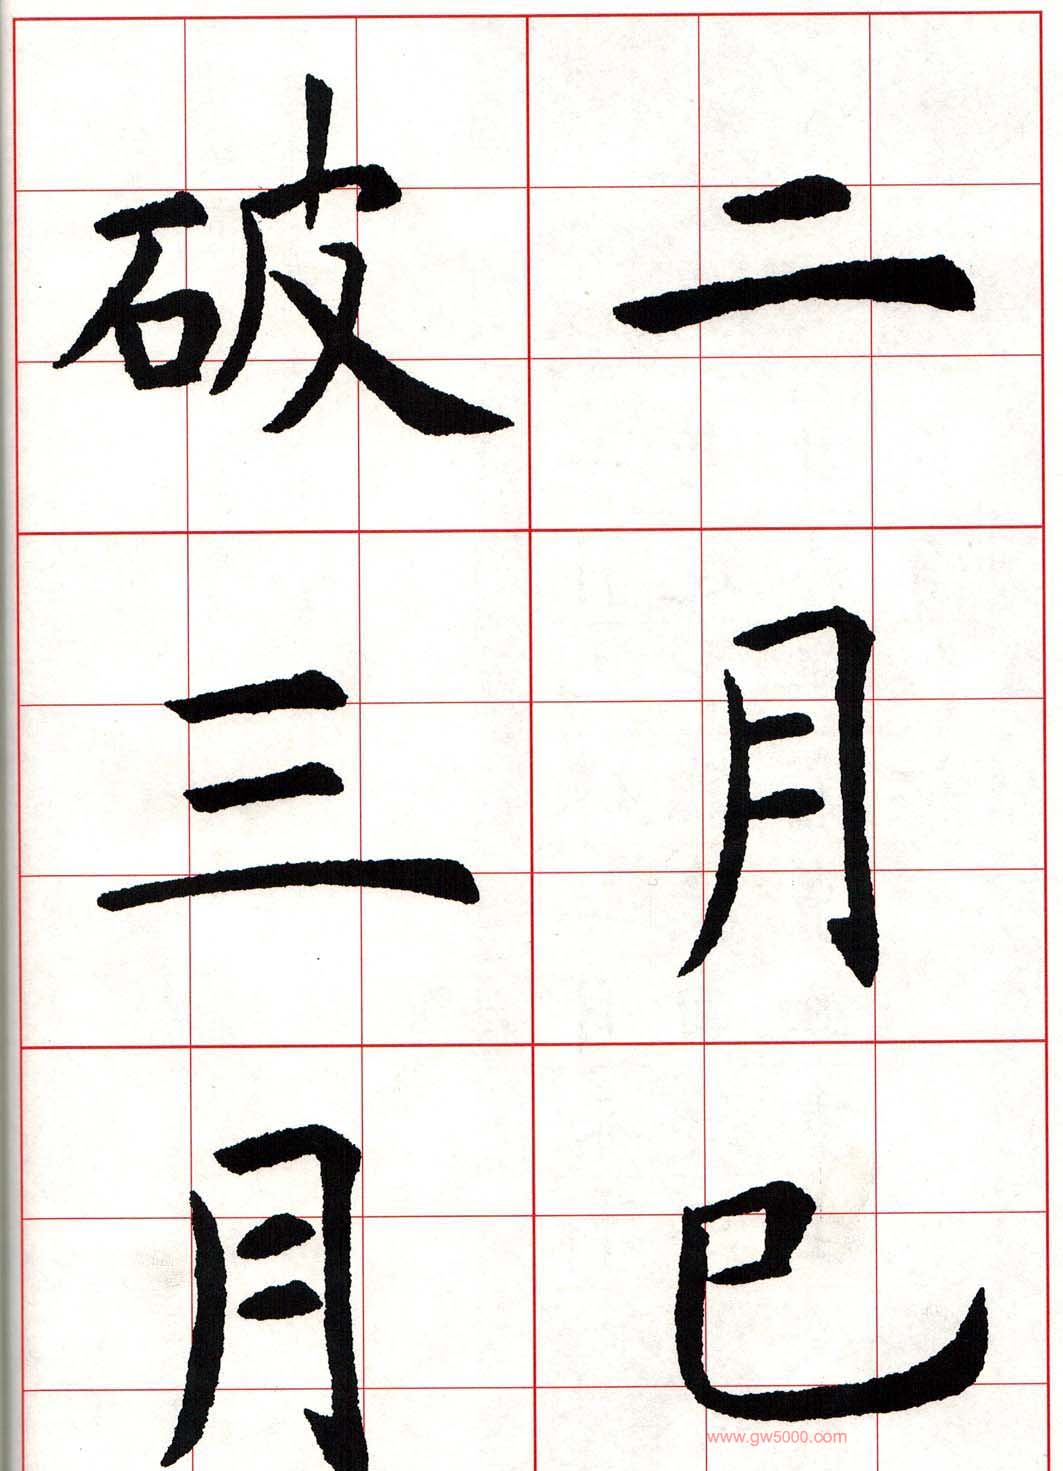 二月已
破三月
www.gw5000.com